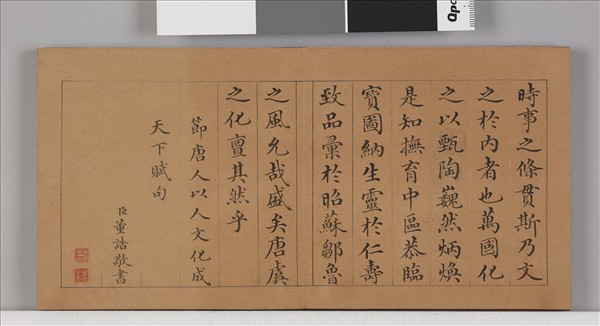 時事之條貫斯乃文
之於內者也萬國化
之以甄陶巍然炳煥
是知撫育中區恭臨
寶圖納生靈於仁壽
致品彙於昭蘇鄒魯
之風允哉盛矣唐虞
之化亶其然乎
節唐人以人文化成
天下賦句
臣董誥敬書